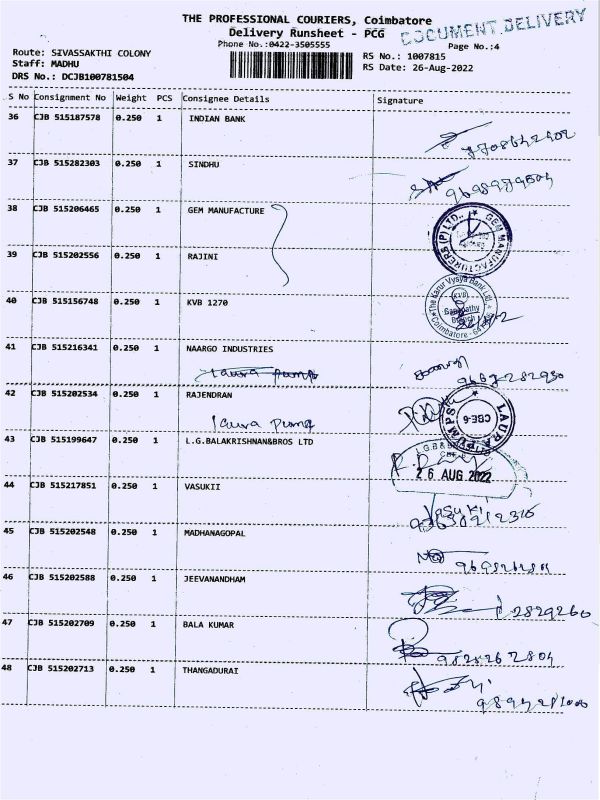 THE PROFESSIONAL COURIERS, Coimbatore
Delivery Runsheet - PCG
DOCUMENT DELIVERY
Phone No.:0422-3505555
Page No.:4
Route: SIVASSAKTHI COLONY
RS No.: 1007815
Staff: MADHU
RS Date: 26-Aug-2022
DRS No.: DCJB100781504
S No Consignment No Weight PCS Consignee Details Signature
36 CJB 515187578 0.250 1 INDIAN BANK
37 CJB 515282303 0.250 1 SINDHU
38 CJB 515206465 0.250 1 GEM MANUFACTURE
GEM MANUFACTURERS (P) LTD.
39 CJB 515202556 0.250 1 RAJINI
40 CJB 515156748 0.250 1 KVB 1270
The Karur Vysya Bank Ltd.
KVB
Ganapathy
Branch
Coimbatore
41 CJB 515216341 0.250 1 NAARGO INDUSTRIES
laura pump
42 CJB 515202534 0.250 1 RAJENDRAN
laura pump
LAURA PUMPS
CBE-6
43 CJB 515199647 0.250 1 L.G.BALAKRISHNAN&BROS LTD
L.G.B &
26 AUG 2022
44 CJB 515217851 0.250 1 VASUKII
Vasuki
45 CJB 515202548 0.250 1 MADHANAGOPAL
46 CJB 515202588 0.250 1 JEEVANANDHAM
47 CJB 515202709 0.250 1 BALA KUMAR
48 CJB 515202713 0.250 1 THANGADURAI